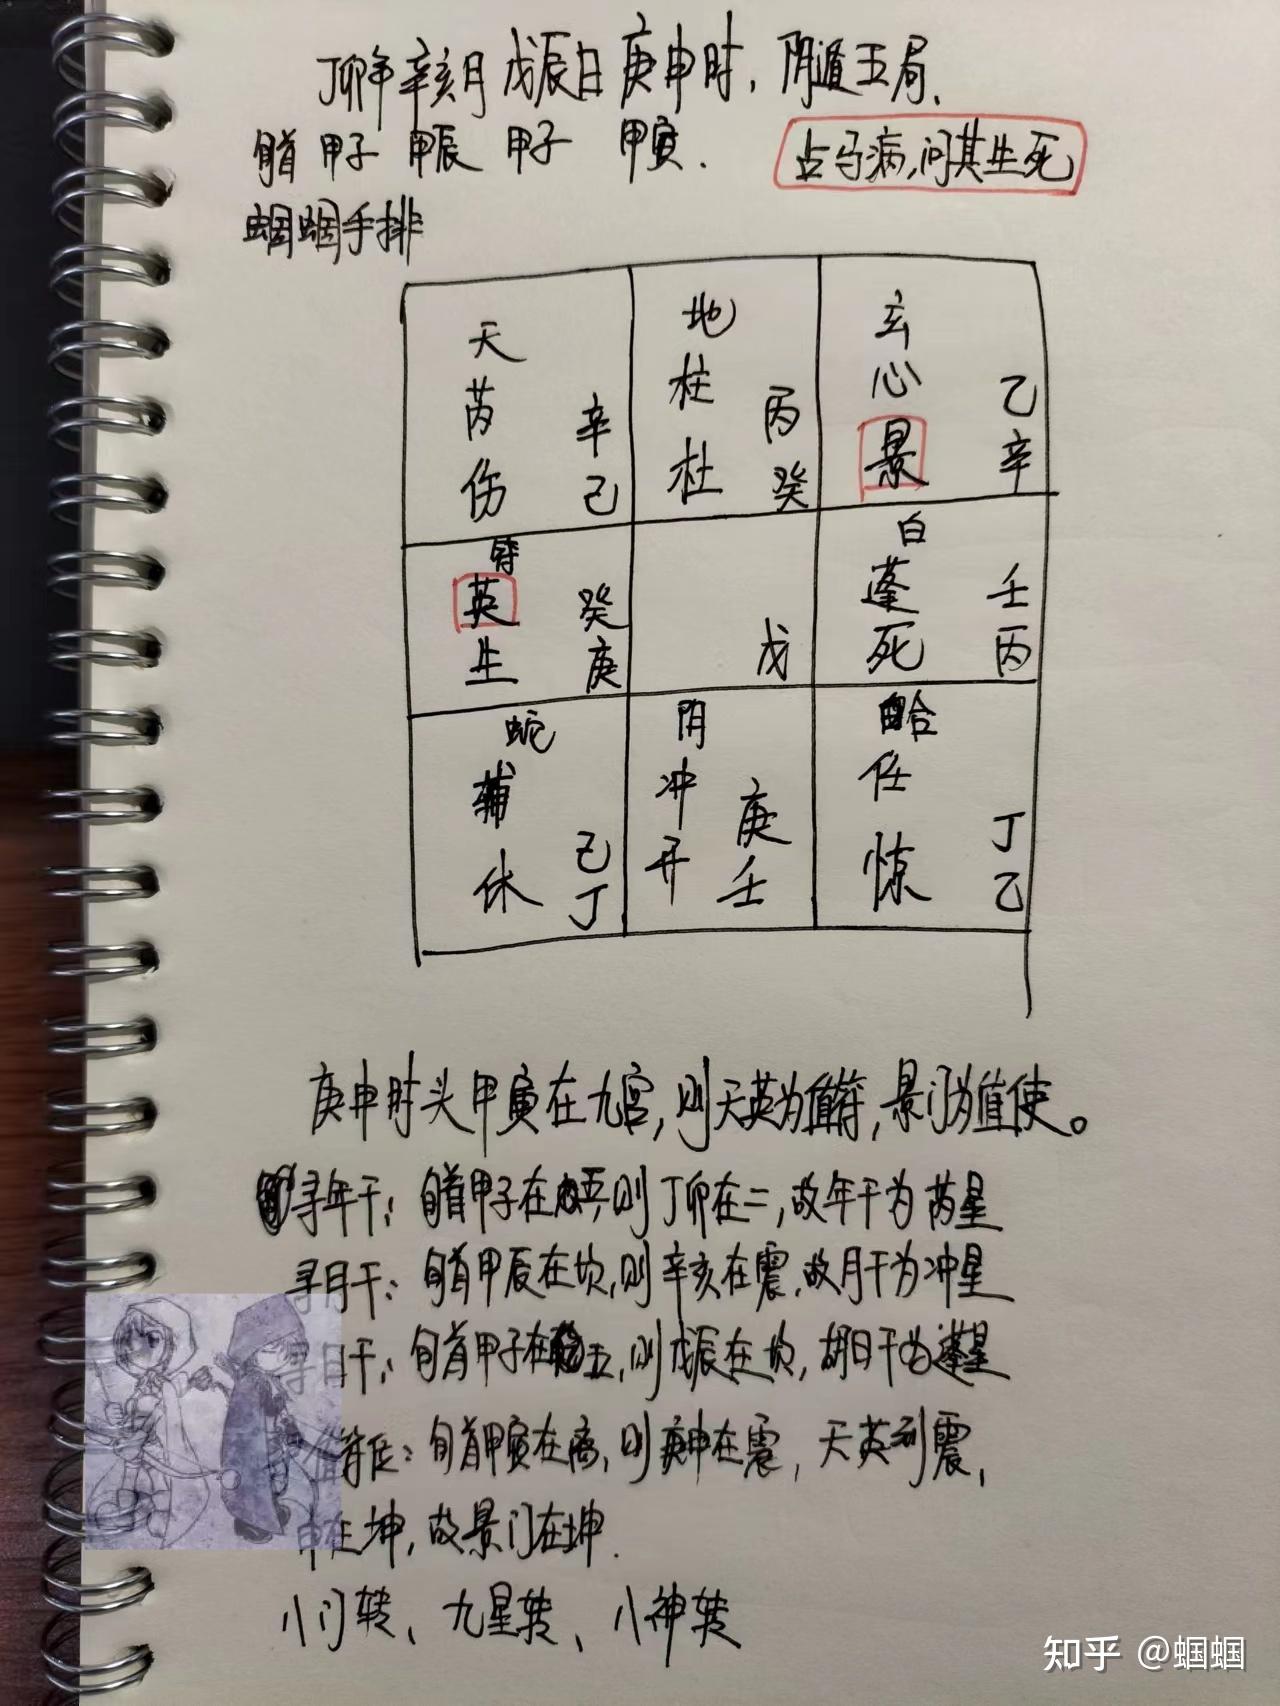 丁卯年 辛亥月 戊辰日 庚申时，阴遁五局、
旬首 甲子 甲辰 甲子 甲寅.
占马病，问其生死
蝈蝈手排
天 地 玄
芮 辛 柱 丙 心 乙
伤 己 杜 癸 景 辛
符 白
英 癸 蓬 壬
生 庚 戊 死 丙
蛇 阴 合
辅 己 冲 庚 任 丁
休 丁 开 壬 惊 乙
庚申时头甲寅在九宫，则天英为值符，景门为值使。
寻年干：旬首甲子在五，则丁卯在二，故年干为芮星
寻月干：旬首甲辰在坎，则辛亥在震，故月干为冲星
寻日干：旬首甲子在五，则戊辰在坎，胡日干为蓬星
符位：旬首甲寅在离，则庚申在震，天英到震，
申在坤，故景门在坤.
八门转、九星转、八神转
知乎 @蝈蝈